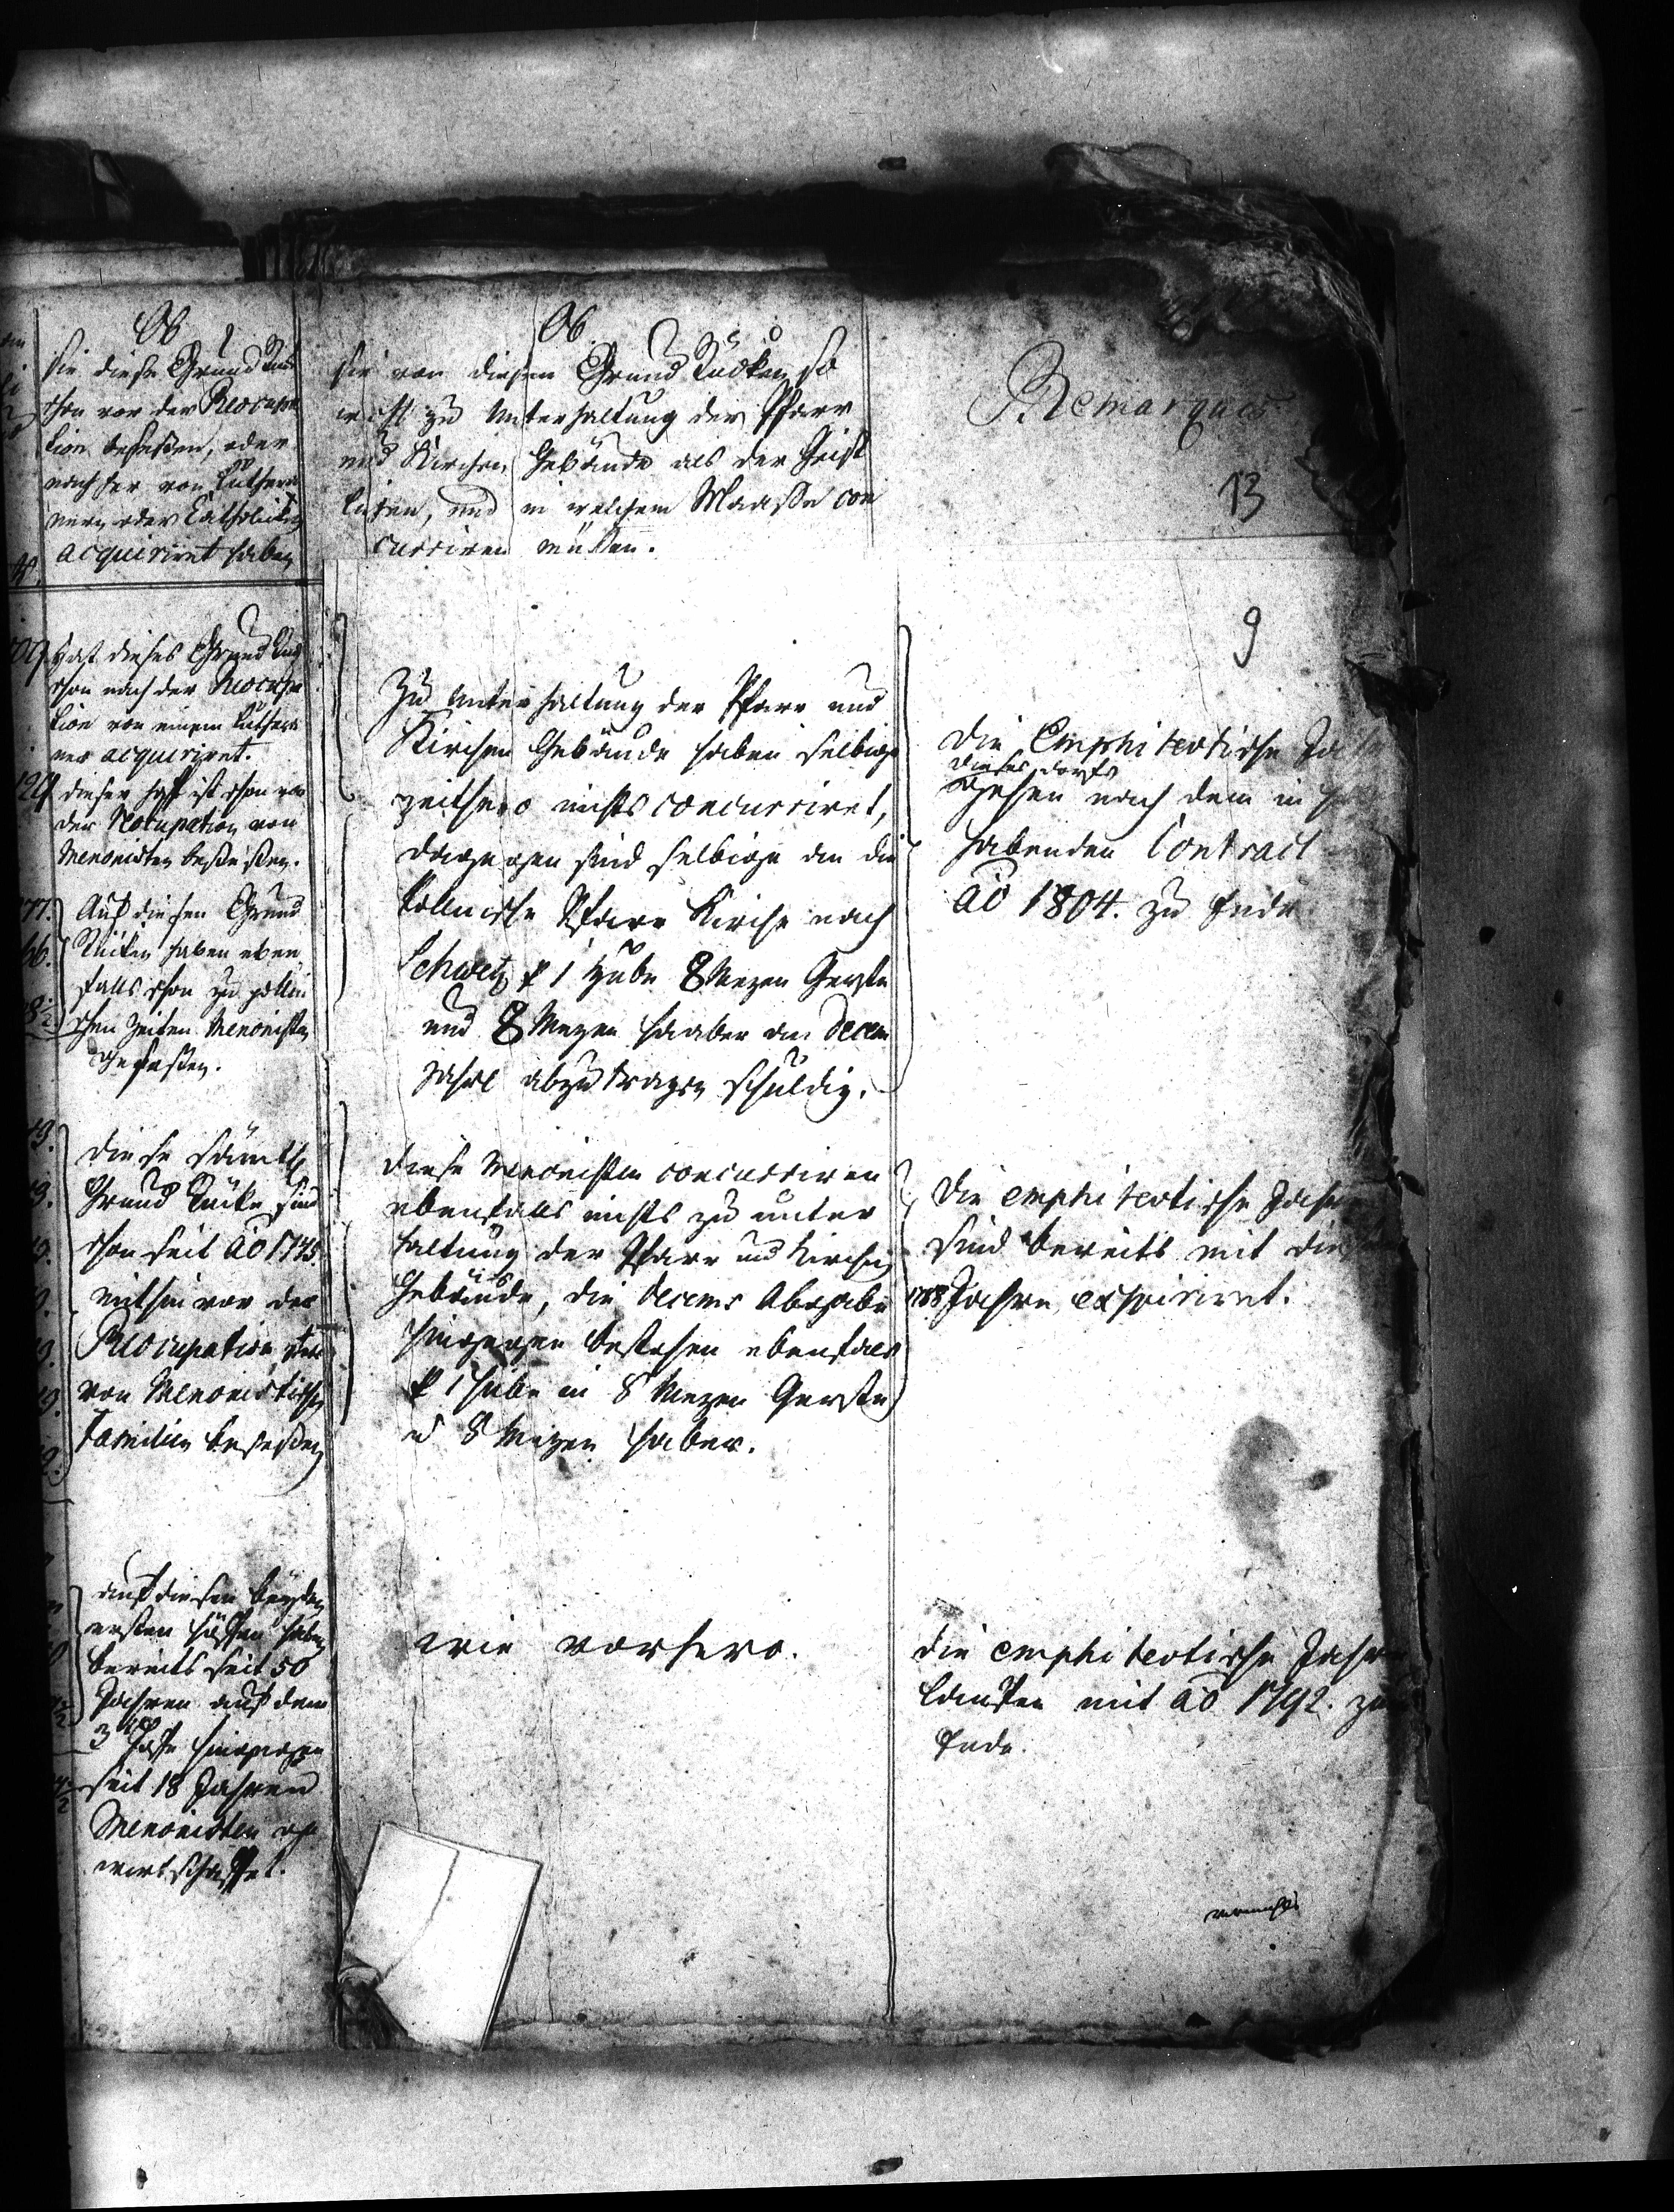 Ob
sie diese Grund Stück
schon vor der Reoccupa
tion besessen, oder
nach her von Luthera
nern oder Catholicken
acquiriret haben
Hat dieses Grundstück
schon nach der Reoccupa
tion von einem Luthera
ner acquiriret.
dieser Hoff ist schon vor
der Reoccupation von
Menonisten besessen.
Auf diesen Grund
Stücken haben eben
falls schon zu pollni
schen Zeiten Menonisten
gesessen.
diese sämtl.
Grund Stücke sind
schon seit ao 1745.
mithin vor der
Reocupation stets
von Menonistischen
Familien besessen
auf diesen beyden
ersten Höffen haben
bereits seit 50
Jahren auf dem
3 Hoffe hingegen
seit 18 Jahren
Menonisten ge
wirtschafftet.
Ob
sie von diesen Grund Stücken so
wohl zu Unterhaltung der Pfarr
und Kirchen Gebäude als der Geist
lichen, und in welchem Maasse con
curriren müssen.
Zu Unterhaltung der Pfarr und
Kirchen Gebäude haben selbige
zeithero nichts concurriret,
dagegen sind selbige an die
Pollnische Pfarr Kirche nach
Schwetz p 1 Hube 8 Mezen Gerste
und 8 Mezen Haaber an Decem
jährl abzutragen schuldig.
diese Menonisten concurriren
ebenfalls nichts zu unter
haltung der Pfarr und Kirchen
Gebäude, die Decems Abgabe
hingegen bestehen ebenfals
p 1 Hube in 8 Mezen Gerste
u 8 Mezen Haber.
wie vorhero.
Remarques
13
9
Die Emphiteotische Ja
dieses Dorfs
gehen nach dem in
habenden Contract
ao 1804. zu Ende
die emphiteotische Jahre
sind bereits mit die
1788 Jahre exspiriret.
die emphiteotische Jahre
lauffen mit ao 1792. zu
Ende.